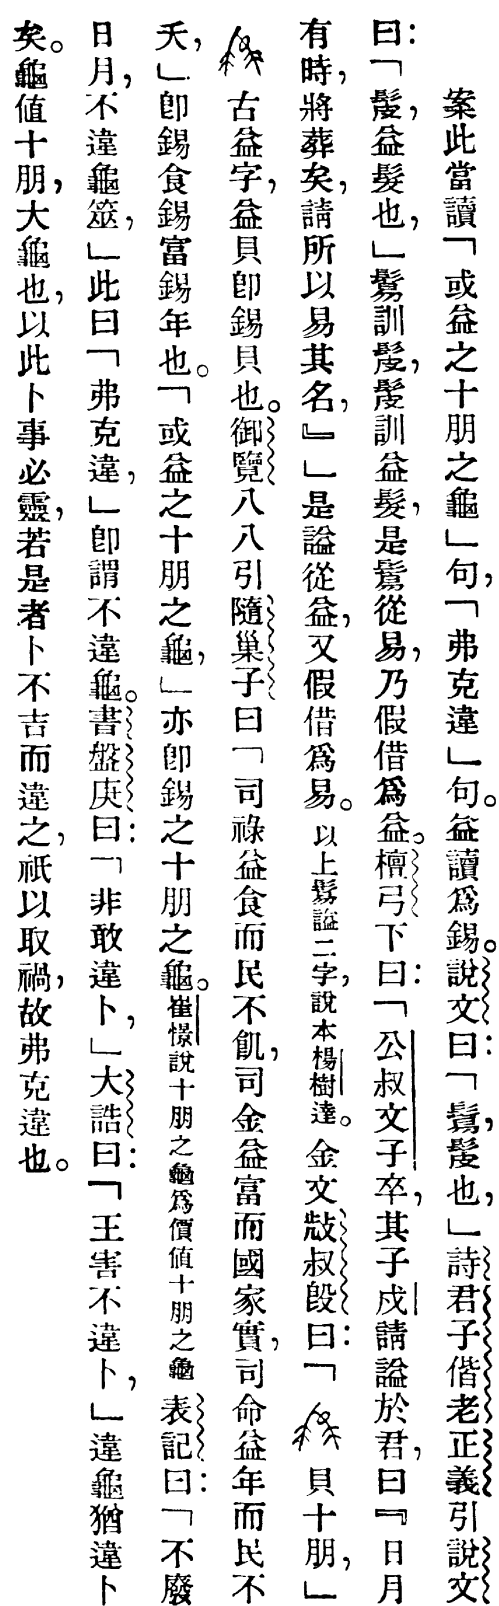 案此當讀「或益之十朋之龜」句，「弗克違」句。益讀爲錫。說文曰：「鬄，髲也，」詩君子偕老正義引說文
曰：「髲，益髮也，」鬄訓髲，髲訓益髮，是鬄從易，乃假借爲益。檀弓下曰：「公叔文子卒，其子戍請謚於君，曰『日月
有時，將葬矣，請所以易其名，』」是謚從益，又假借爲易。以上鬄謚二字，說本楊樹達。金文㪤叔𣪘曰：「貝十朋，」
古益字，益貝卽錫貝也。御覽八八引隨巢子曰「司祿益食而民不飢，司金益富而國家實，司命益年而民不
夭，」卽錫食錫富錫年也。「或益之十朋之龜，」亦卽錫之十朋之龜。崔憬說十朋之龜爲價値十朋之龜表記曰：「不廢
日月，不違龜筮，」此曰「弗克違，」卽謂不違龜。書盤庚曰：「非敢違卜，」大誥曰：「王害不違卜，」違龜猶違卜
矣。龜値十朋，大龜也，以此卜事必靈，若是者卜不吉而違之，祇以取禍，故弗克違也。